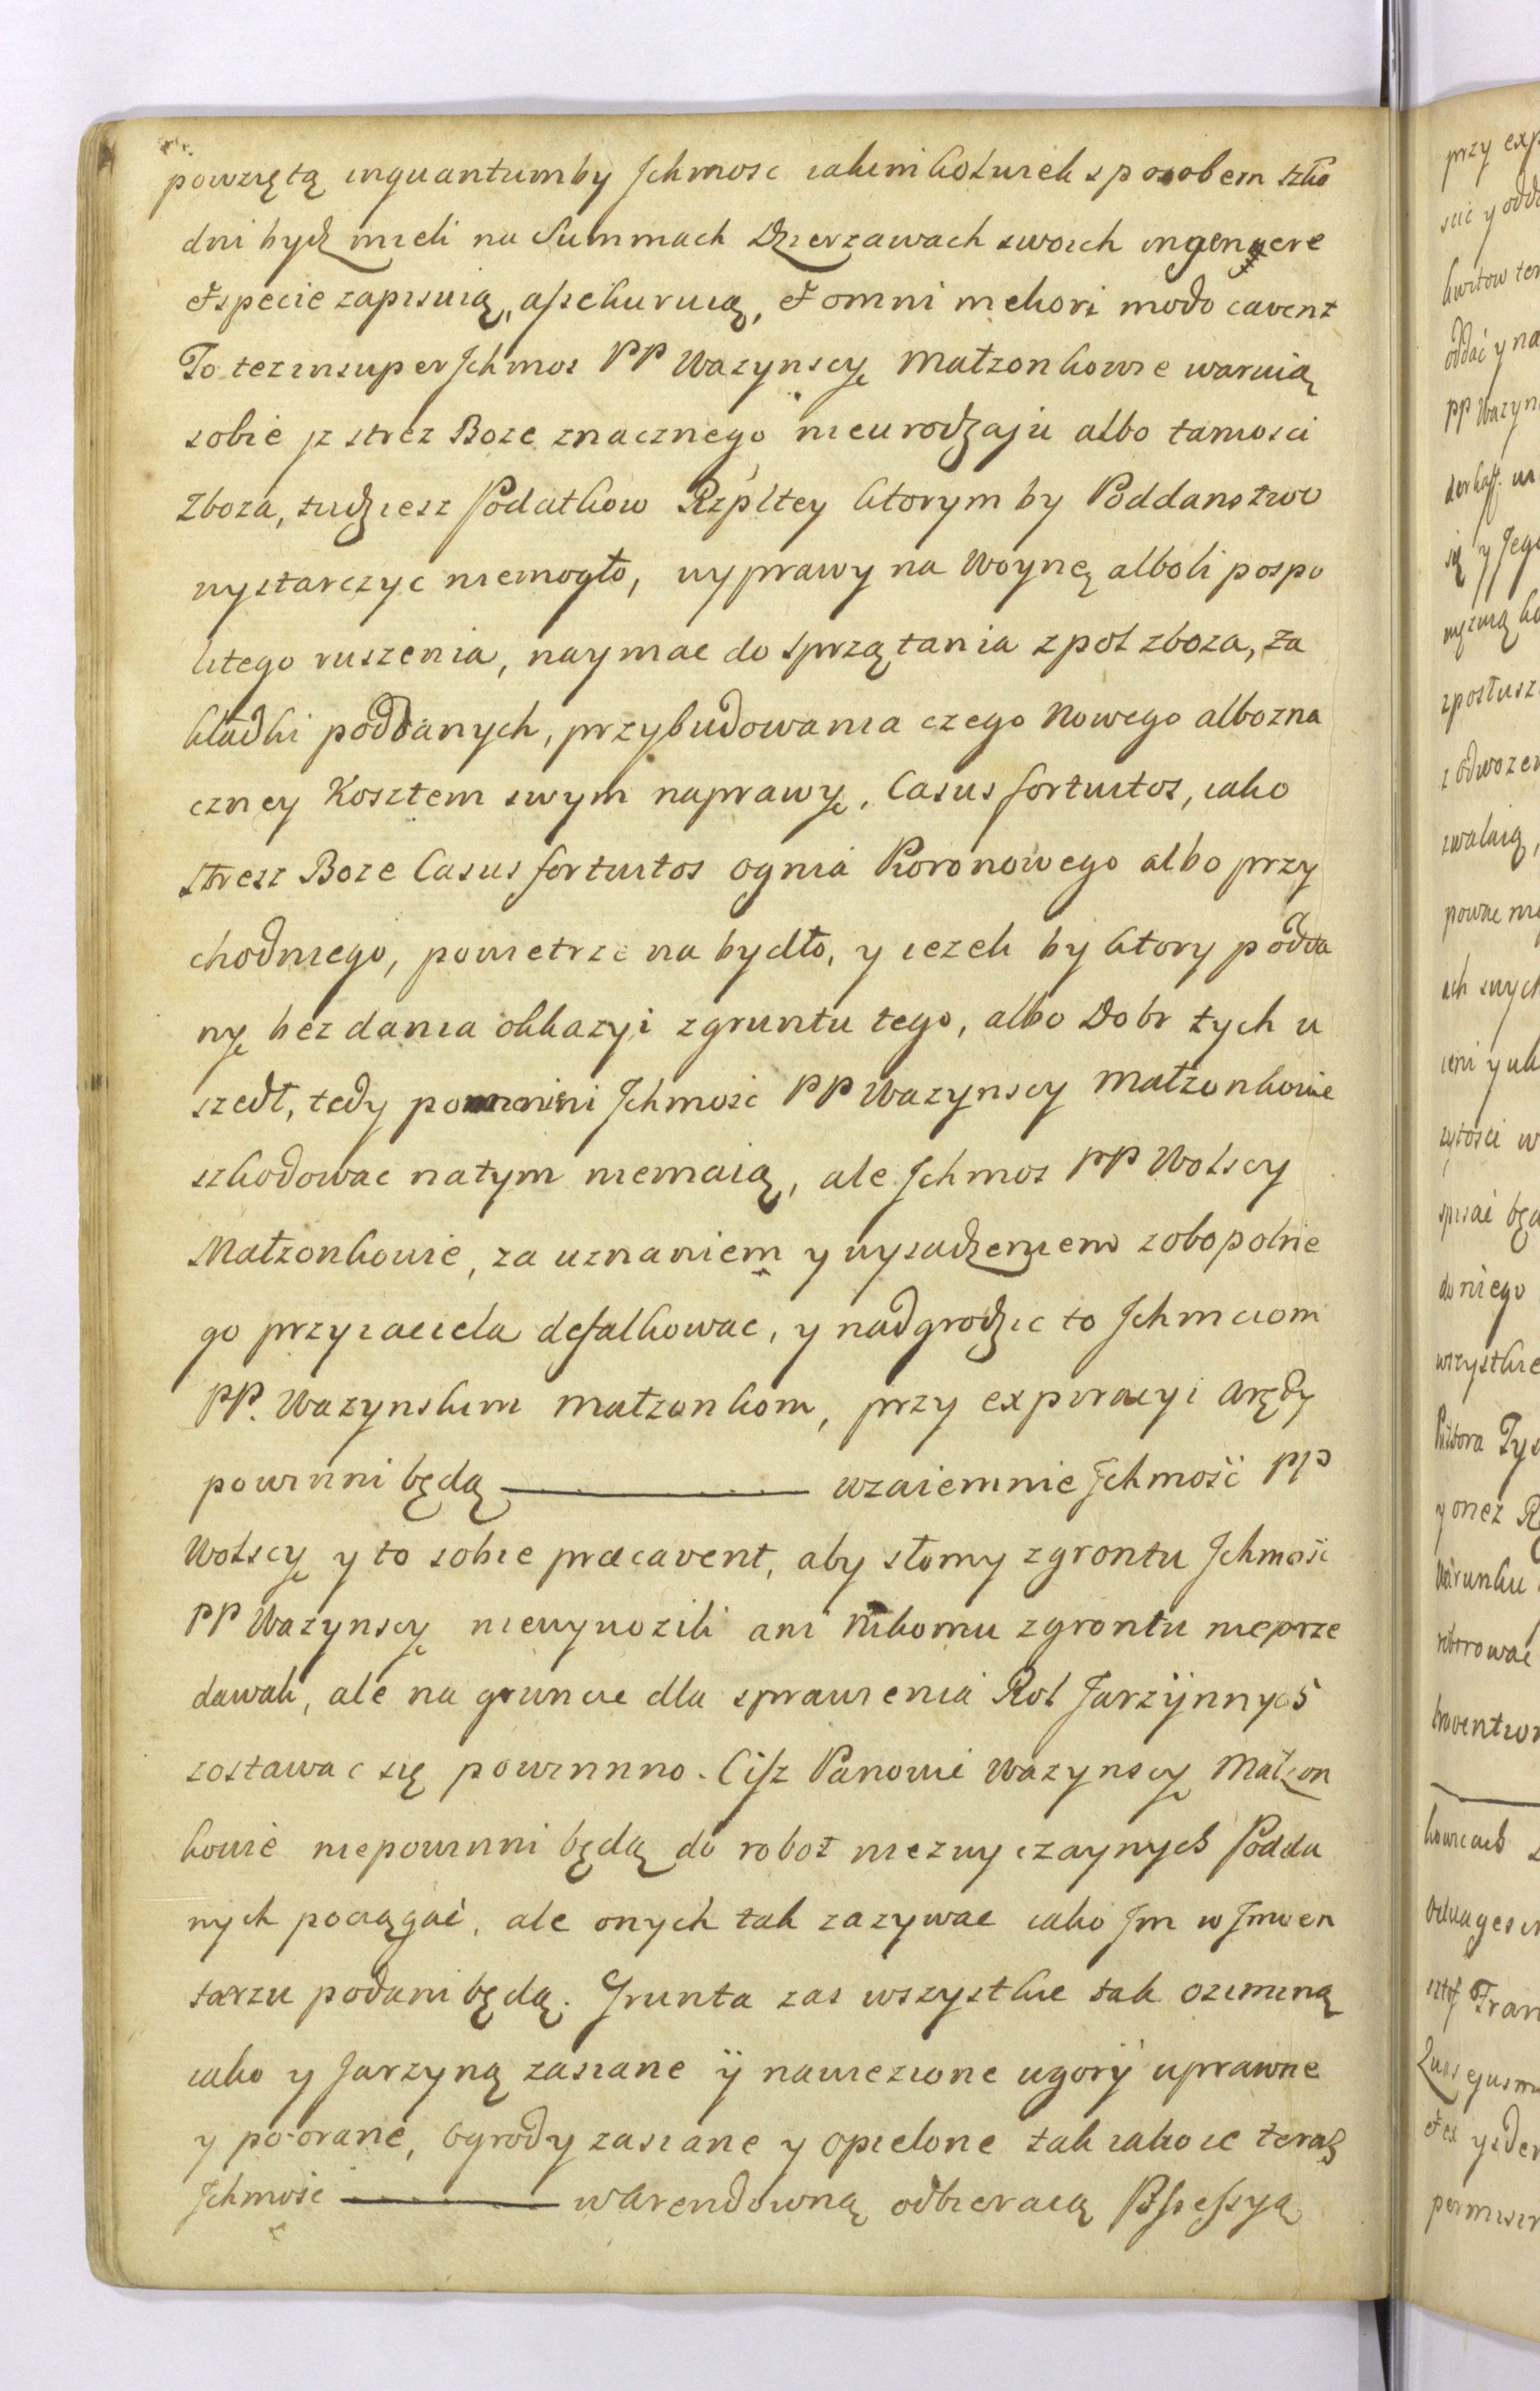 powziętą inquantumby Ichmosc iakimkolwiek sposobem szko
dni bydz mieli na Summach Dzierzawach swoich ingenere
et specie zapisuią, assekuruią, et omni meliori modo cavent
To tez insuper Ichmos PP Wazynscy Małzonkowie waruią
sobie iz strez Boze znacznego nieurodzaju albo taniosci
Zboza, tudziesz Podatkow Rzpltey ktorym by Poddanstwo
wystarczyc niemogło, wyprawy na Woynę alboli pospo
litego ruszenia, naymac do sprzątania z pol zboza, za
kładki poddanych, przybudowania czego Nowego albo zna
czney Kosztem swym naprawy, Casus fortuitos, iako
stresz Boze Casus fortuitos ognia Pioronowego albo przy
chodniego, powietrze na bydło, y iezeli by ktory podda
ny bez dania okkazyi z gruntu tego, albo Dobr tych u
szedł, tedy powinni Ichmosc PP Wazynscy Małzonkowie
szkodowac natym niemaią, ale Ichmos PP Wolscy
Małzonkowie, za uznaniem y wysadzeniem zobopolnie
go przyiaciela defalkowac, y nadgrodzic to Ichmciom
PP. Wazynskim Małzonkom, przy expiracyi Arędy
powinni będą ———— wzaiemnie Ichmość PP
Wolscy y to sobie præcavent, aby słomy z grontu Ichmość
PP Wazynscy niewywozili ani nikomu z grontu nieprze
dawali, ale na gruncie dla sprawienia Rol Jarzÿnnych
zostawac się powinnno. Cisz Panowie Wazynscy Małzon
kowie niepowinni będą do robot niezwyczaynych Podda
nych pociągać, ale onych tak zazywac iako Im w Inwen
tarzu podani będą. Grunta zas wszystkie tak oziminą
iako y Jarzyną zasiane ÿ nawiezione ugorÿ uprawne
y po-orane, Ogrody zasiane y opielone tak iakoie teraz
Ichmość ———— w Arendowną odbieraią Possessyą